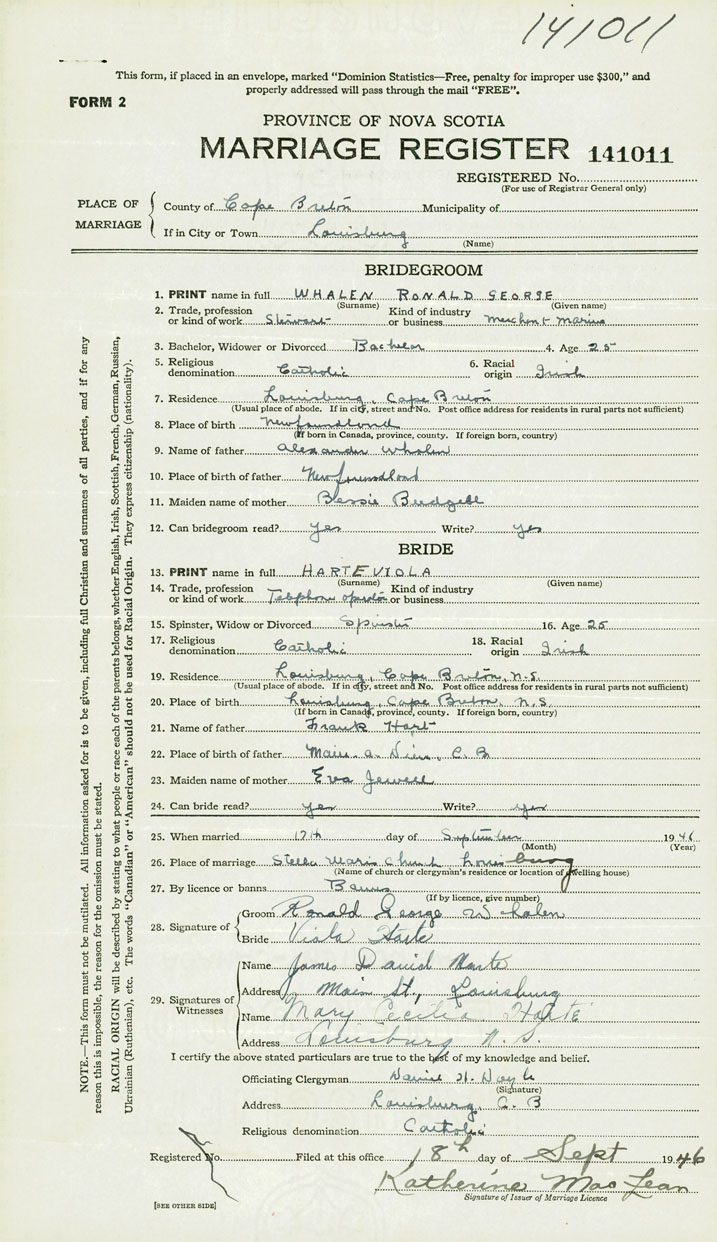 141011
This form, if placed in an envelope, marked "Dominion Statistics—Free, penalty for improper use $300," and
properly addressed will pass through the mail "FREE".
FORM 2
PROVINCE OF NOVA SCOTIA
MARRIAGE REGISTER 141011
REGISTERED No.
(For use of Registrar General only)
PLACE OF MARRIAGE
County of Cape Breton Municipality of
If in City or Town Louisburg
(Name)
BRIDEGROOM
1. PRINT name in full WHALEN RONALD GEORGE
(Surname) (Given name)
2. Trade, profession or kind of work Stewart Kind of industry or business Merchant Marine
3. Bachelor, Widower or Divorced Bachelor 4. Age 25
5. Religious denomination Catholic 6. Racial origin Irish
7. Residence Louisburg, Cape Breton
(Usual place of abode. If in city, street and No. Post office address for residents in rural parts not sufficient)
8. Place of birth Newfoundland
(If born in Canada, province, county. If foreign born, country)
9. Name of father Alexander Whalen
10. Place of birth of father Newfoundland
11. Maiden name of mother Bessie Budgell
12. Can bridegroom read? yes Write? yes
BRIDE
13. PRINT name in full HARTE VIOLA
(Surname) (Given name)
14. Trade, profession or kind of work Telephone operator Kind of industry or business
15. Spinster, Widow or Divorced Spinster 16. Age 25
17. Religious denomination Catholic 18. Racial origin Irish
19. Residence Louisburg, Cape Breton, N.S.
(Usual place of abode. If in city, street and No. Post office address for residents in rural parts not sufficient)
20. Place of birth Louisburg, Cape Breton, N.S.
(If born in Canada, province, county. If foreign born, country)
21. Name of father Frank Hart
22. Place of birth of father Main a Dieu, C.B
23. Maiden name of mother Eva Jewell
24. Can bride read? yes Write? yes
25. When married 17th day of September 1946
(Month) (Year)
26. Place of marriage Stella Maris Church Louisburg
(Name of church or clergyman's residence or location of dwelling house)
27. By licence or banns Banns
(If by licence, give number)
28. Signature of
Groom Ronald George Whalen
Bride Viola Harte
29. Signatures of Witnesses
Name James David Harte
Address Main St., Louisburg
Name Mary Cecilia Harte
Address Louisburg N.S.
I certify the above stated particulars are true to the best of my knowledge and belief.
Officiating Clergyman H. Doyle
(Signature)
Address Louisburg, C.B
Religious denomination Catholic
Registered No. Filed at this office 18th day of Sept 1946
Katherine MacLean
Signature of Issuer of Marriage Licence
[SEE OTHER SIDE]
NOTE.—This form must not be mutilated. All information asked for is to be given, including full Christian and surnames of all parties, and if for any
reason this is impossible, the reason for the omission must be stated.
RACIAL ORIGIN will be described by stating to what people or race each of the parents belongs, whether English, Irish, Scottish, French, German, Russian,
Ukrainian (Ruthenian), etc. The words "Canadian" or "American" should not be used for Racial Origin. They express citizenship (nationality).